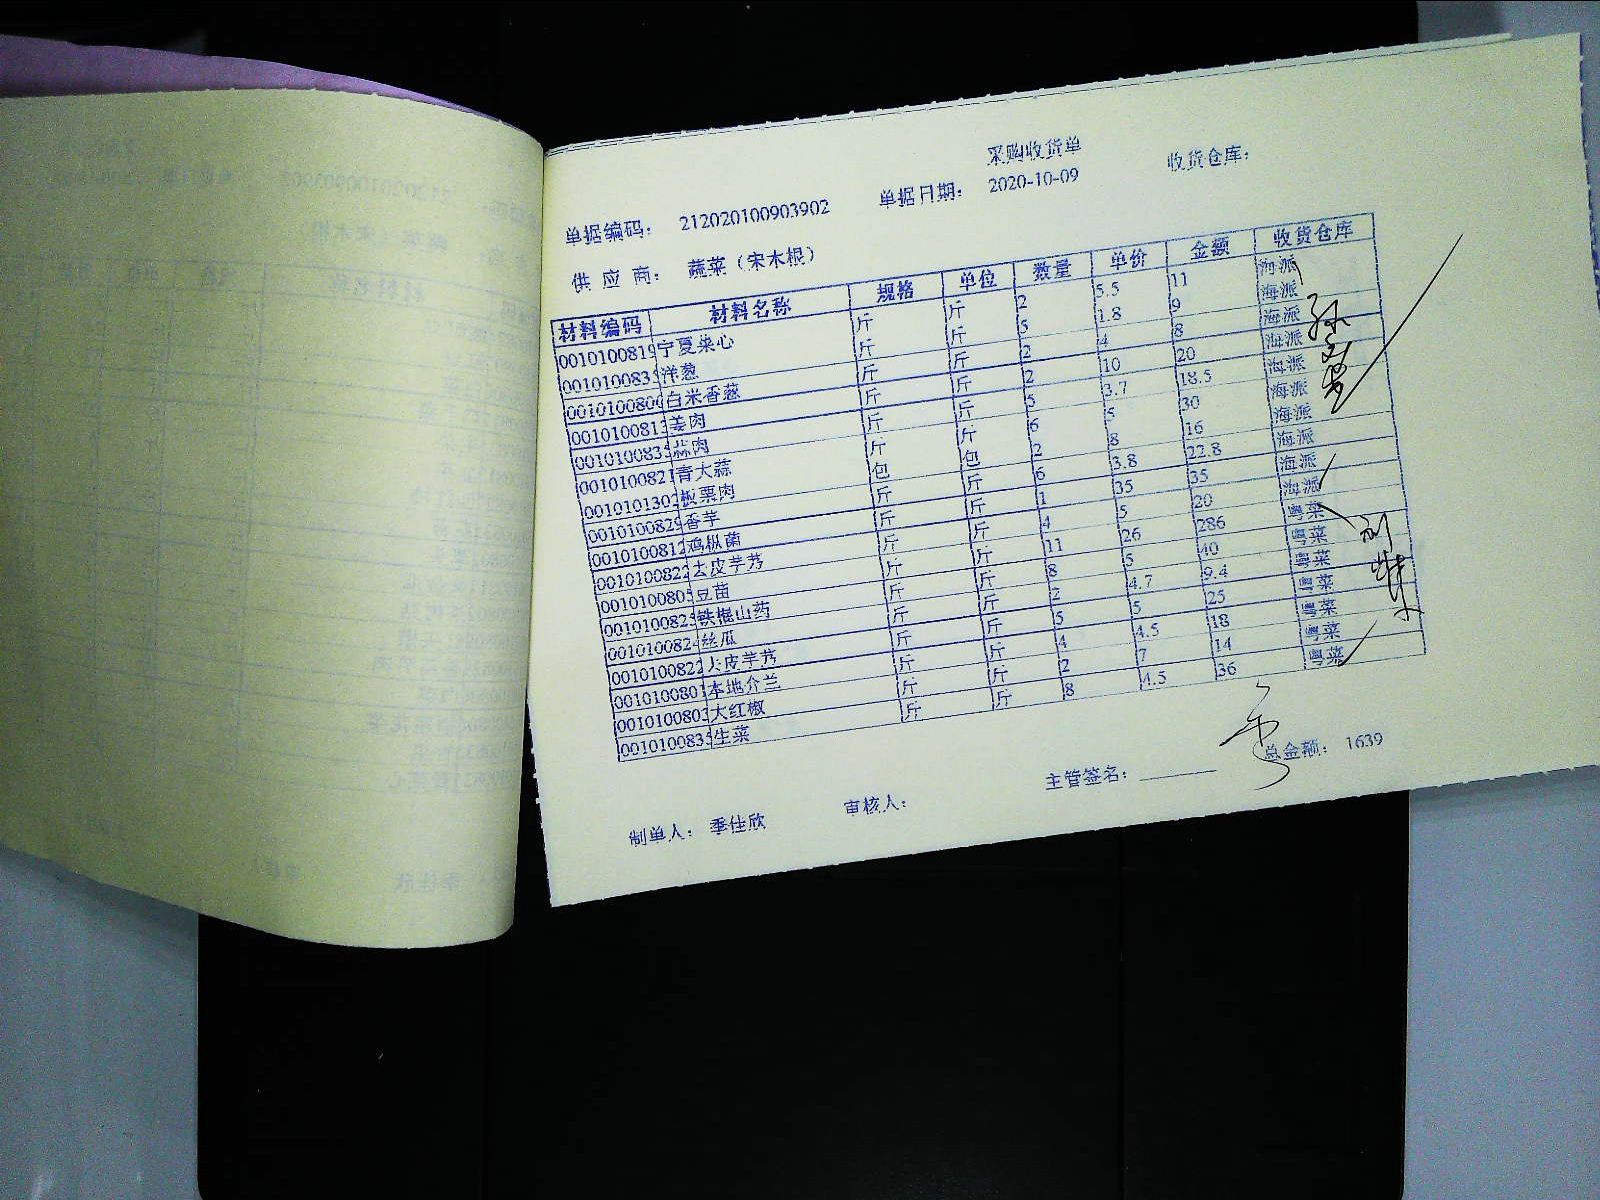 采购收货单
单据编码： 212020100903902 单据日期： 2020-10-09 收货仓库：
供 应 商： 蔬菜（宋木根）
材料编码 材料名称 规格 单位 数量 单价 金额 收货仓库
0010100819 宁夏菜心 斤 斤 2 5.5 11 海派
001010083 洋葱 斤 斤 5 1.8 9 海派
0010100800 白米香葱 斤 斤 2 4 8 海派
001010081 姜肉 斤 斤 2 10 20 海派
001010083 蒜肉 斤 斤 5 3.7 18.5 海派
001010082 青大蒜 斤 斤 6 5 30 海派
001010130 板栗肉 包 包 2 8 16 海派
001010082 香芋 斤 斤 6 3.8 22.8 海派
001010081 鸡枞菌 斤 斤 1 35 35 海派
001010082 去皮芋艿 斤 斤 4 5 20 海派
001010080 豆苗 斤 斤 11 26 286 粤菜
001010082 铁棍山药 斤 斤 8 5 40 粤菜
001010082 丝瓜 斤 斤 2 4.7 9.4 粤菜
001010082 去皮芋艿 斤 斤 5 5 25 粤菜
001010080 本地介兰 斤 斤 4 4.5 18 粤菜
001010080 大红椒 斤 斤 2 7 14 粤菜
001010083 生菜 斤 斤 8 4.5 36 粤菜
制单人： 季佳欣 审核人： 主管签名： 总金额： 1639